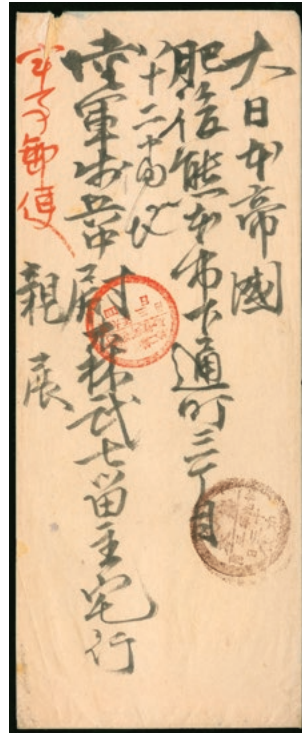 大日本帝國
肥後熊本市下通町三丁目
八十二番地
陸軍步兵中尉 武七留主宅行
親展
軍事郵便